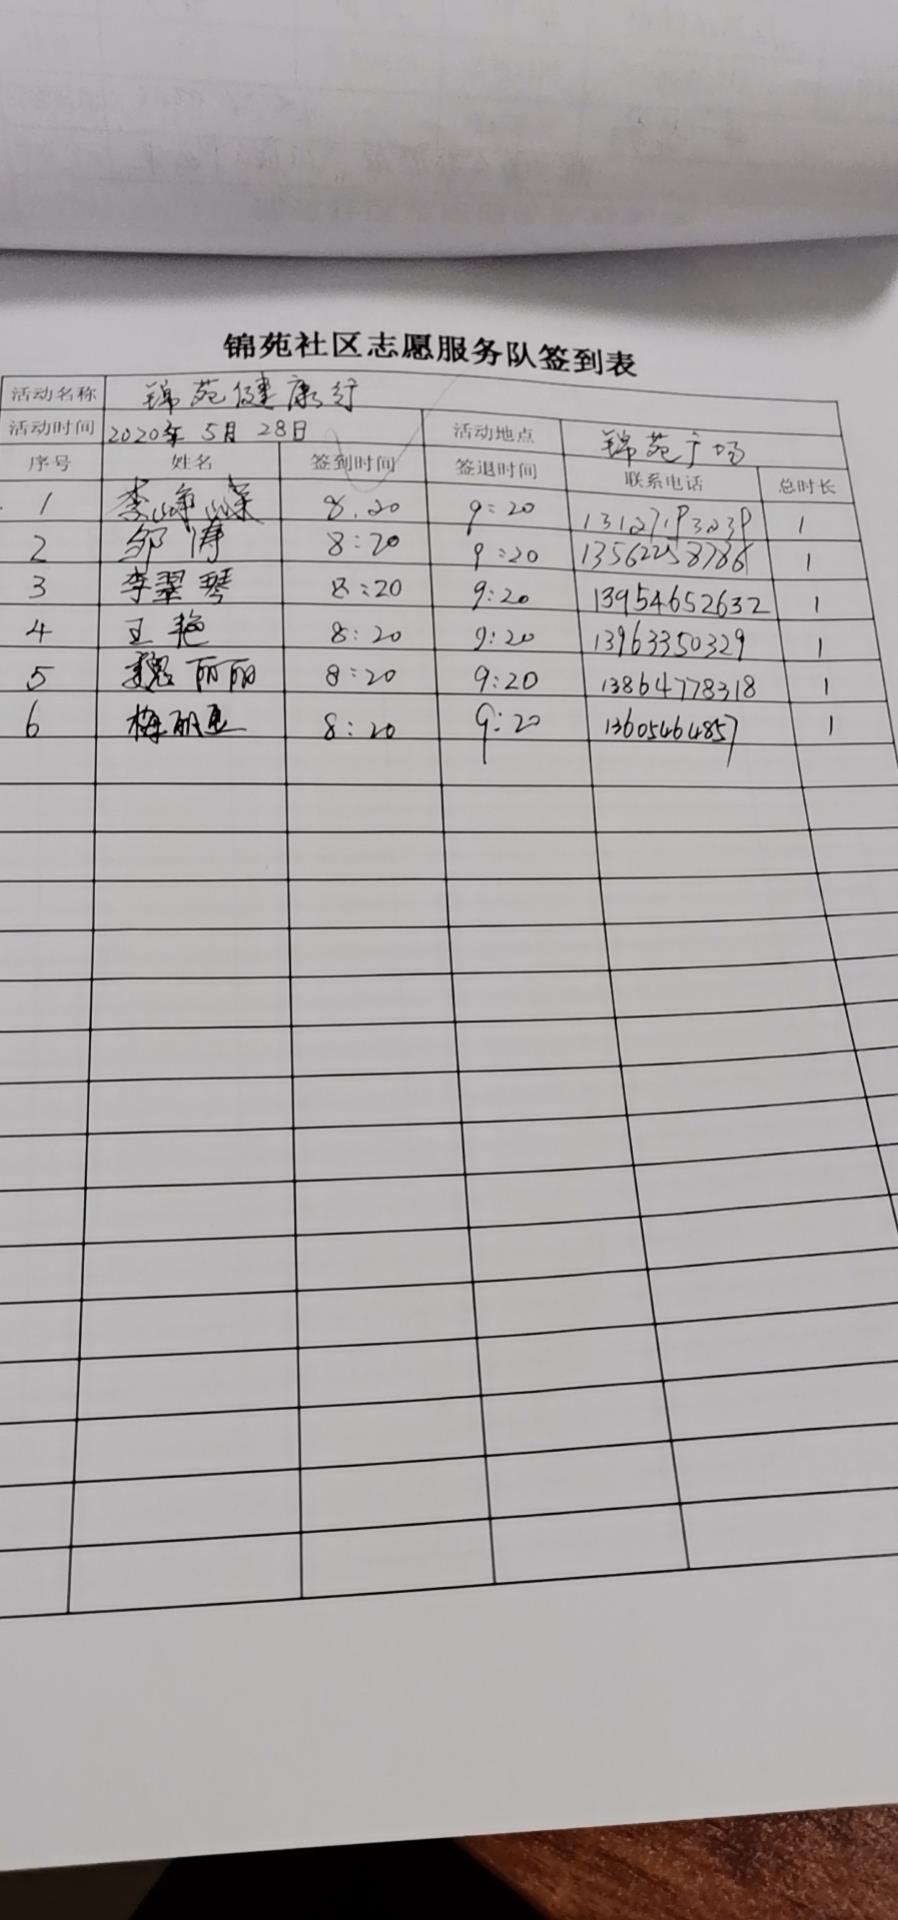 锦苑社区志愿服务队签到表
活动名称 锦苑健康行
活动时间 2020年5月28日 活动地点 锦苑广场
序号 姓名 签到时间 签退时间 联系电话 总时长
1 李峥嵘 8.20 9:20 13127193239 1
2 邹涛 8:20 9:20 13562258786 1
3 李翠琴 8:20 9:20 13954652632 1
4 王艳 8:20 9:20 13963350329 1
5 魏丽丽 8:20 9:20 13864778318 1
6 梅丽亚 8:20 9:20 13605464857 1